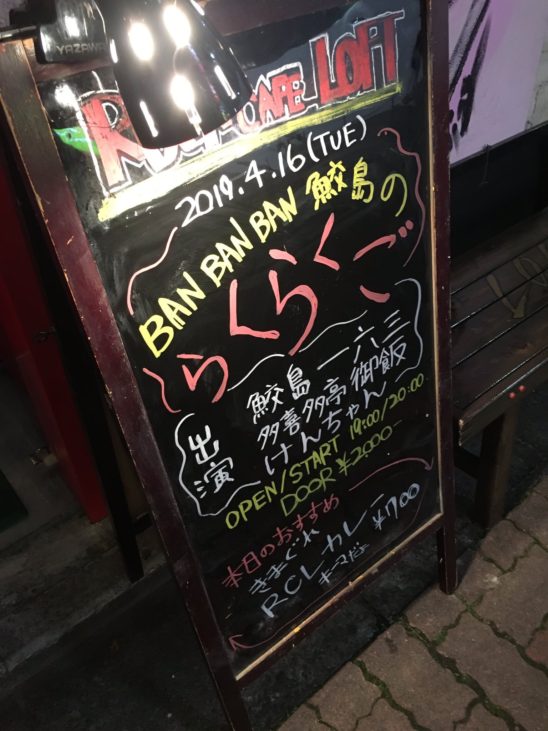 YAZAWA
ROCK CAFE LOFT
2019.4.16(TUE)
BAN BAN BAN 鮫島の
らくらくご
出演
鮫島一六三
多喜多亭御飯
けんちゃん
OPEN/START 19:00/20:00
DOOR ¥2000-
本日のおすすめ
きまぐれ
RCLカレー ¥700
キーマだよ